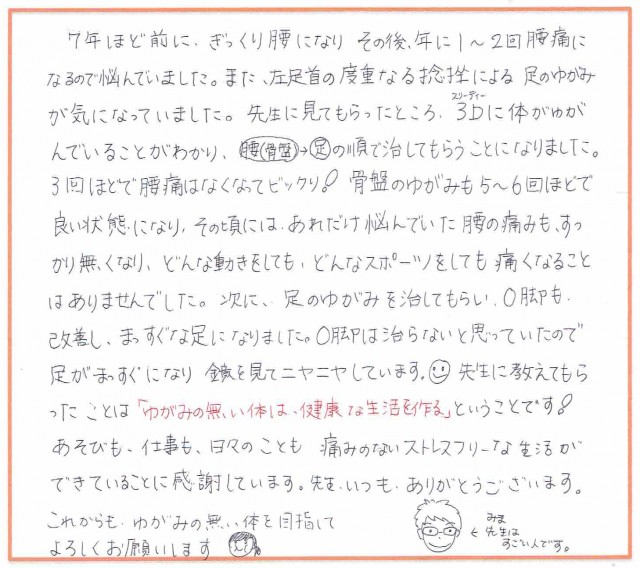 7年ほど前に、ぎっくり腰になり その後、年に1～2回腰痛に
なるので悩んでいました。また、左足首の度重なる捻挫による 足のゆがみ
が気になっていました。先生に見てもらったところ、3Dに体がゆが
スリーディー
んでいることがわかり、腰(骨盤)→足の順で治してもらうことになりました。
3回ほどで腰痛はなくなってビックリ! 骨盤のゆがみも5～6回ほどで
良い状態になり、その頃には、あれだけ悩んでいた腰の痛みも、すっ
かり無くなり、どんな動きをしても、どんなスポーツをしても 痛くなること
はありませんでした。次に、足のゆがみを治してもらい、O脚も、
改善し、まっすぐな足になりました。O脚は治らないと思っていたので
足がまっすぐになり 鏡を見てニヤニヤしています。先生に教えてもら
ったことは「ゆがみの無い体は、健康な生活を作る」ということです!
あそびも、仕事も、日々のことも 痛みのないストレスフリーな生活が
できていることに感謝しています。先生、いつも、ありがとうございます。
これからも、ゆがみの無い体を目指して
よろしくお願いします
みま
←先生は
すごい人です。